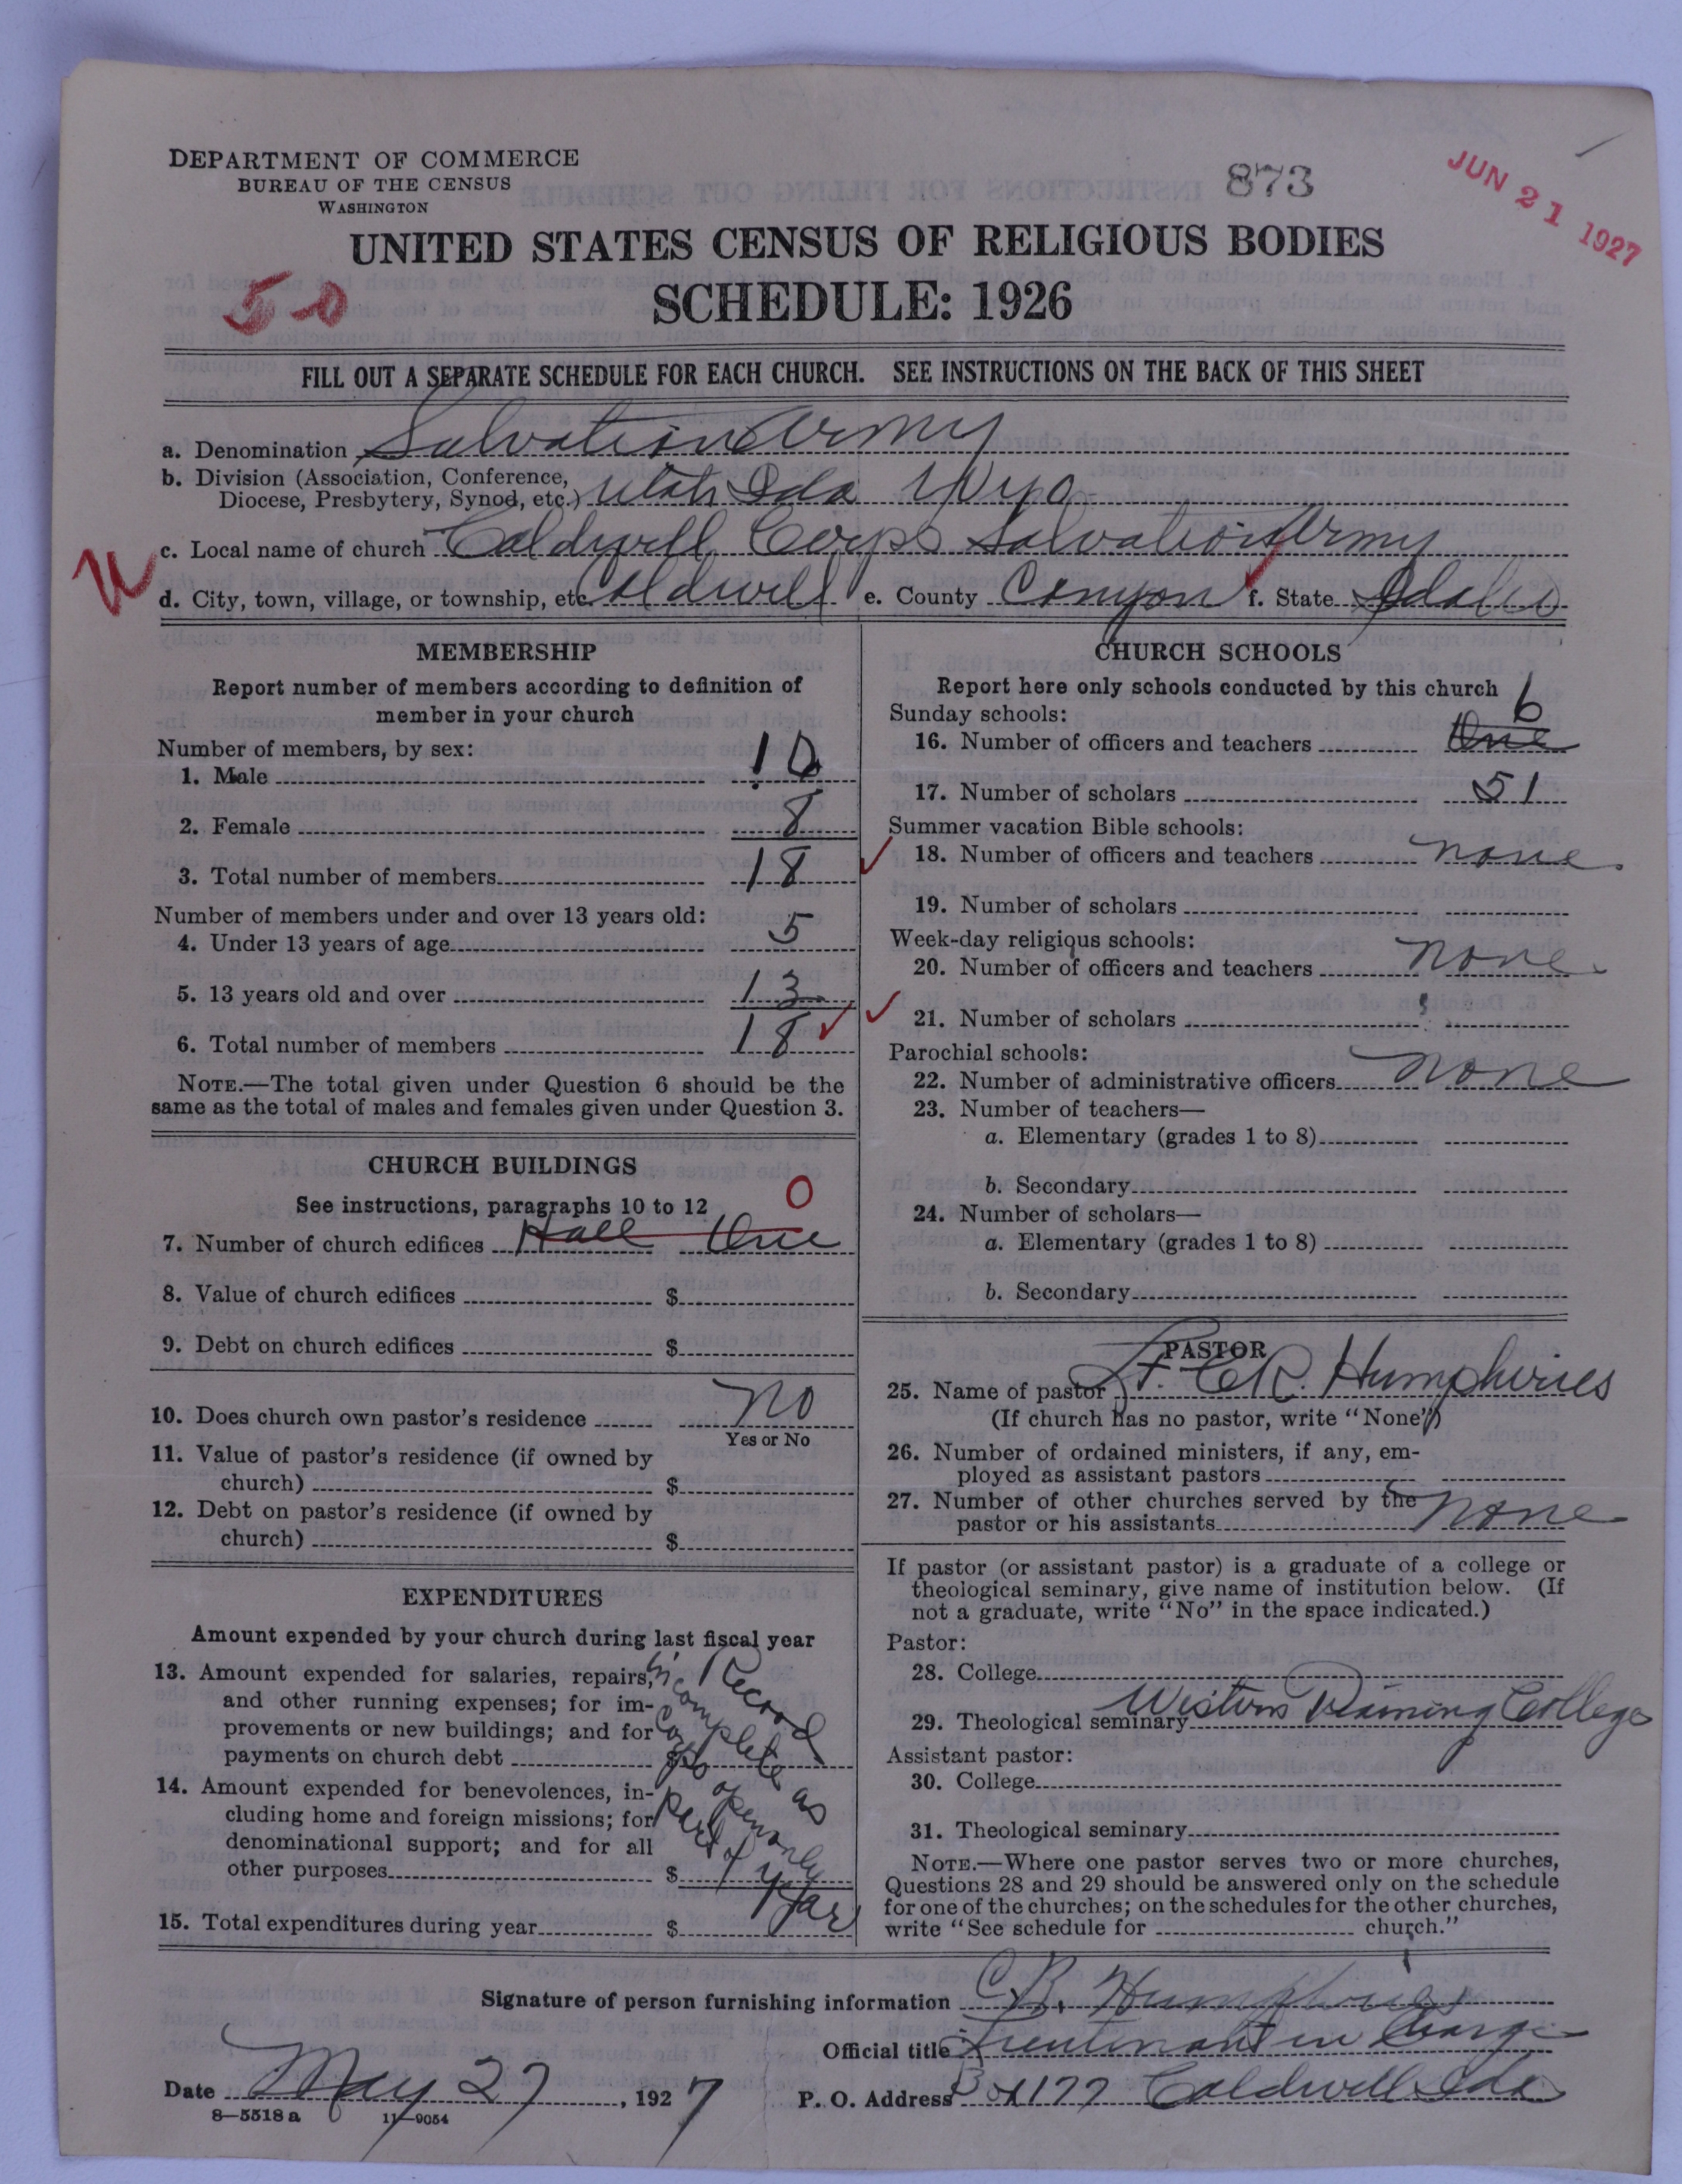 DEPARTMENT OF COMMERCE
BUREAU OF THE CENSUS
WASHINGTON
873
JUN 21 1927
UNITED STATES CENSUS OF RELIGIOUS BODIES
50
SCHEDULE: 1926
FILL OUT A SEPARATE SCHEDULE FOR EACH CHURCH. SEE INSTRUCTIONS ON THE BACK OF THIS SHEET
a. Denomination Salvation Army
b. Division (Association, Conference,
Diocese, Presbytery, Synod, etc.) Utah Ida Wyo
c. Local name of church Caldwell Corps Salvation Army
d. City, town, village, or township, etc. Caldwell e. County Canyon f. State Idaho
MEMBERSHIP
Report number of members according to definition of
member in your church
Number of members, by sex:
1. Male 10
2. Female 8
3. Total number of members 18
Number of members under and over 13 years old:
4. Under 13 years of age 5
5. 13 years old and over 13
6. Total number of members 18
NOTE.—The total given under Question 6 should be the
same as the total of males and females given under Question 3.
CHURCH BUILDINGS
See instructions, paragraphs 10 to 12
0
7. Number of church edifices Hall One
8. Value of church edifices $
9. Debt on church edifices $
10. Does church own pastor's residence No
Yes or No
11. Value of pastor's residence (if owned by
church) $
12. Debt on pastor's residence (if owned by
church) $
EXPENDITURES
Amount expended by your church during last fiscal year
13. Amount expended for salaries, repairs,
and other running expenses; for im-
provements or new buildings; and for
payments on church debt $
14. Amount expended for benevolences, in-
cluding home and foreign missions; for
denominational support; and for all
other purposes $
15. Total expenditures during year $
Record
incomplete as
Corps open only
part of year
CHURCH SCHOOLS
Report here only schools conducted by this church
Sunday schools:
6
16. Number of officers and teachers One
17. Number of scholars 51
Summer vacation Bible schools:
18. Number of officers and teachers none
19. Number of scholars
Week-day religious schools:
20. Number of officers and teachers none
21. Number of scholars
Parochial schools:
22. Number of administrative officers none
23. Number of teachers—
a. Elementary (grades 1 to 8)
b. Secondary
24. Number of scholars—
a. Elementary (grades 1 to 8)
b. Secondary
PASTOR
25. Name of pastor Lt. C.R. Humphries
(If church has no pastor, write "None")
26. Number of ordained ministers, if any, em-
ployed as assistant pastors
27. Number of other churches served by the
pastor or his assistants none
If pastor (or assistant pastor) is a graduate of a college or
theological seminary, give name of institution below. (If
not a graduate, write "No" in the space indicated.)
Pastor:
28. College
29. Theological seminary Western Training College
Assistant pastor:
30. College
31. Theological seminary
NOTE.—Where one pastor serves two or more churches,
Questions 28 and 29 should be answered only on the schedule
for one of the churches; on the schedules for the other churches,
write "See schedule for church."
Signature of person furnishing information C.R. Humphries
Official title Lieutenant in Charge
Date May 27, 1927 P. O. Address Box 177 Caldwell Ida
8—5518 a 11—9054